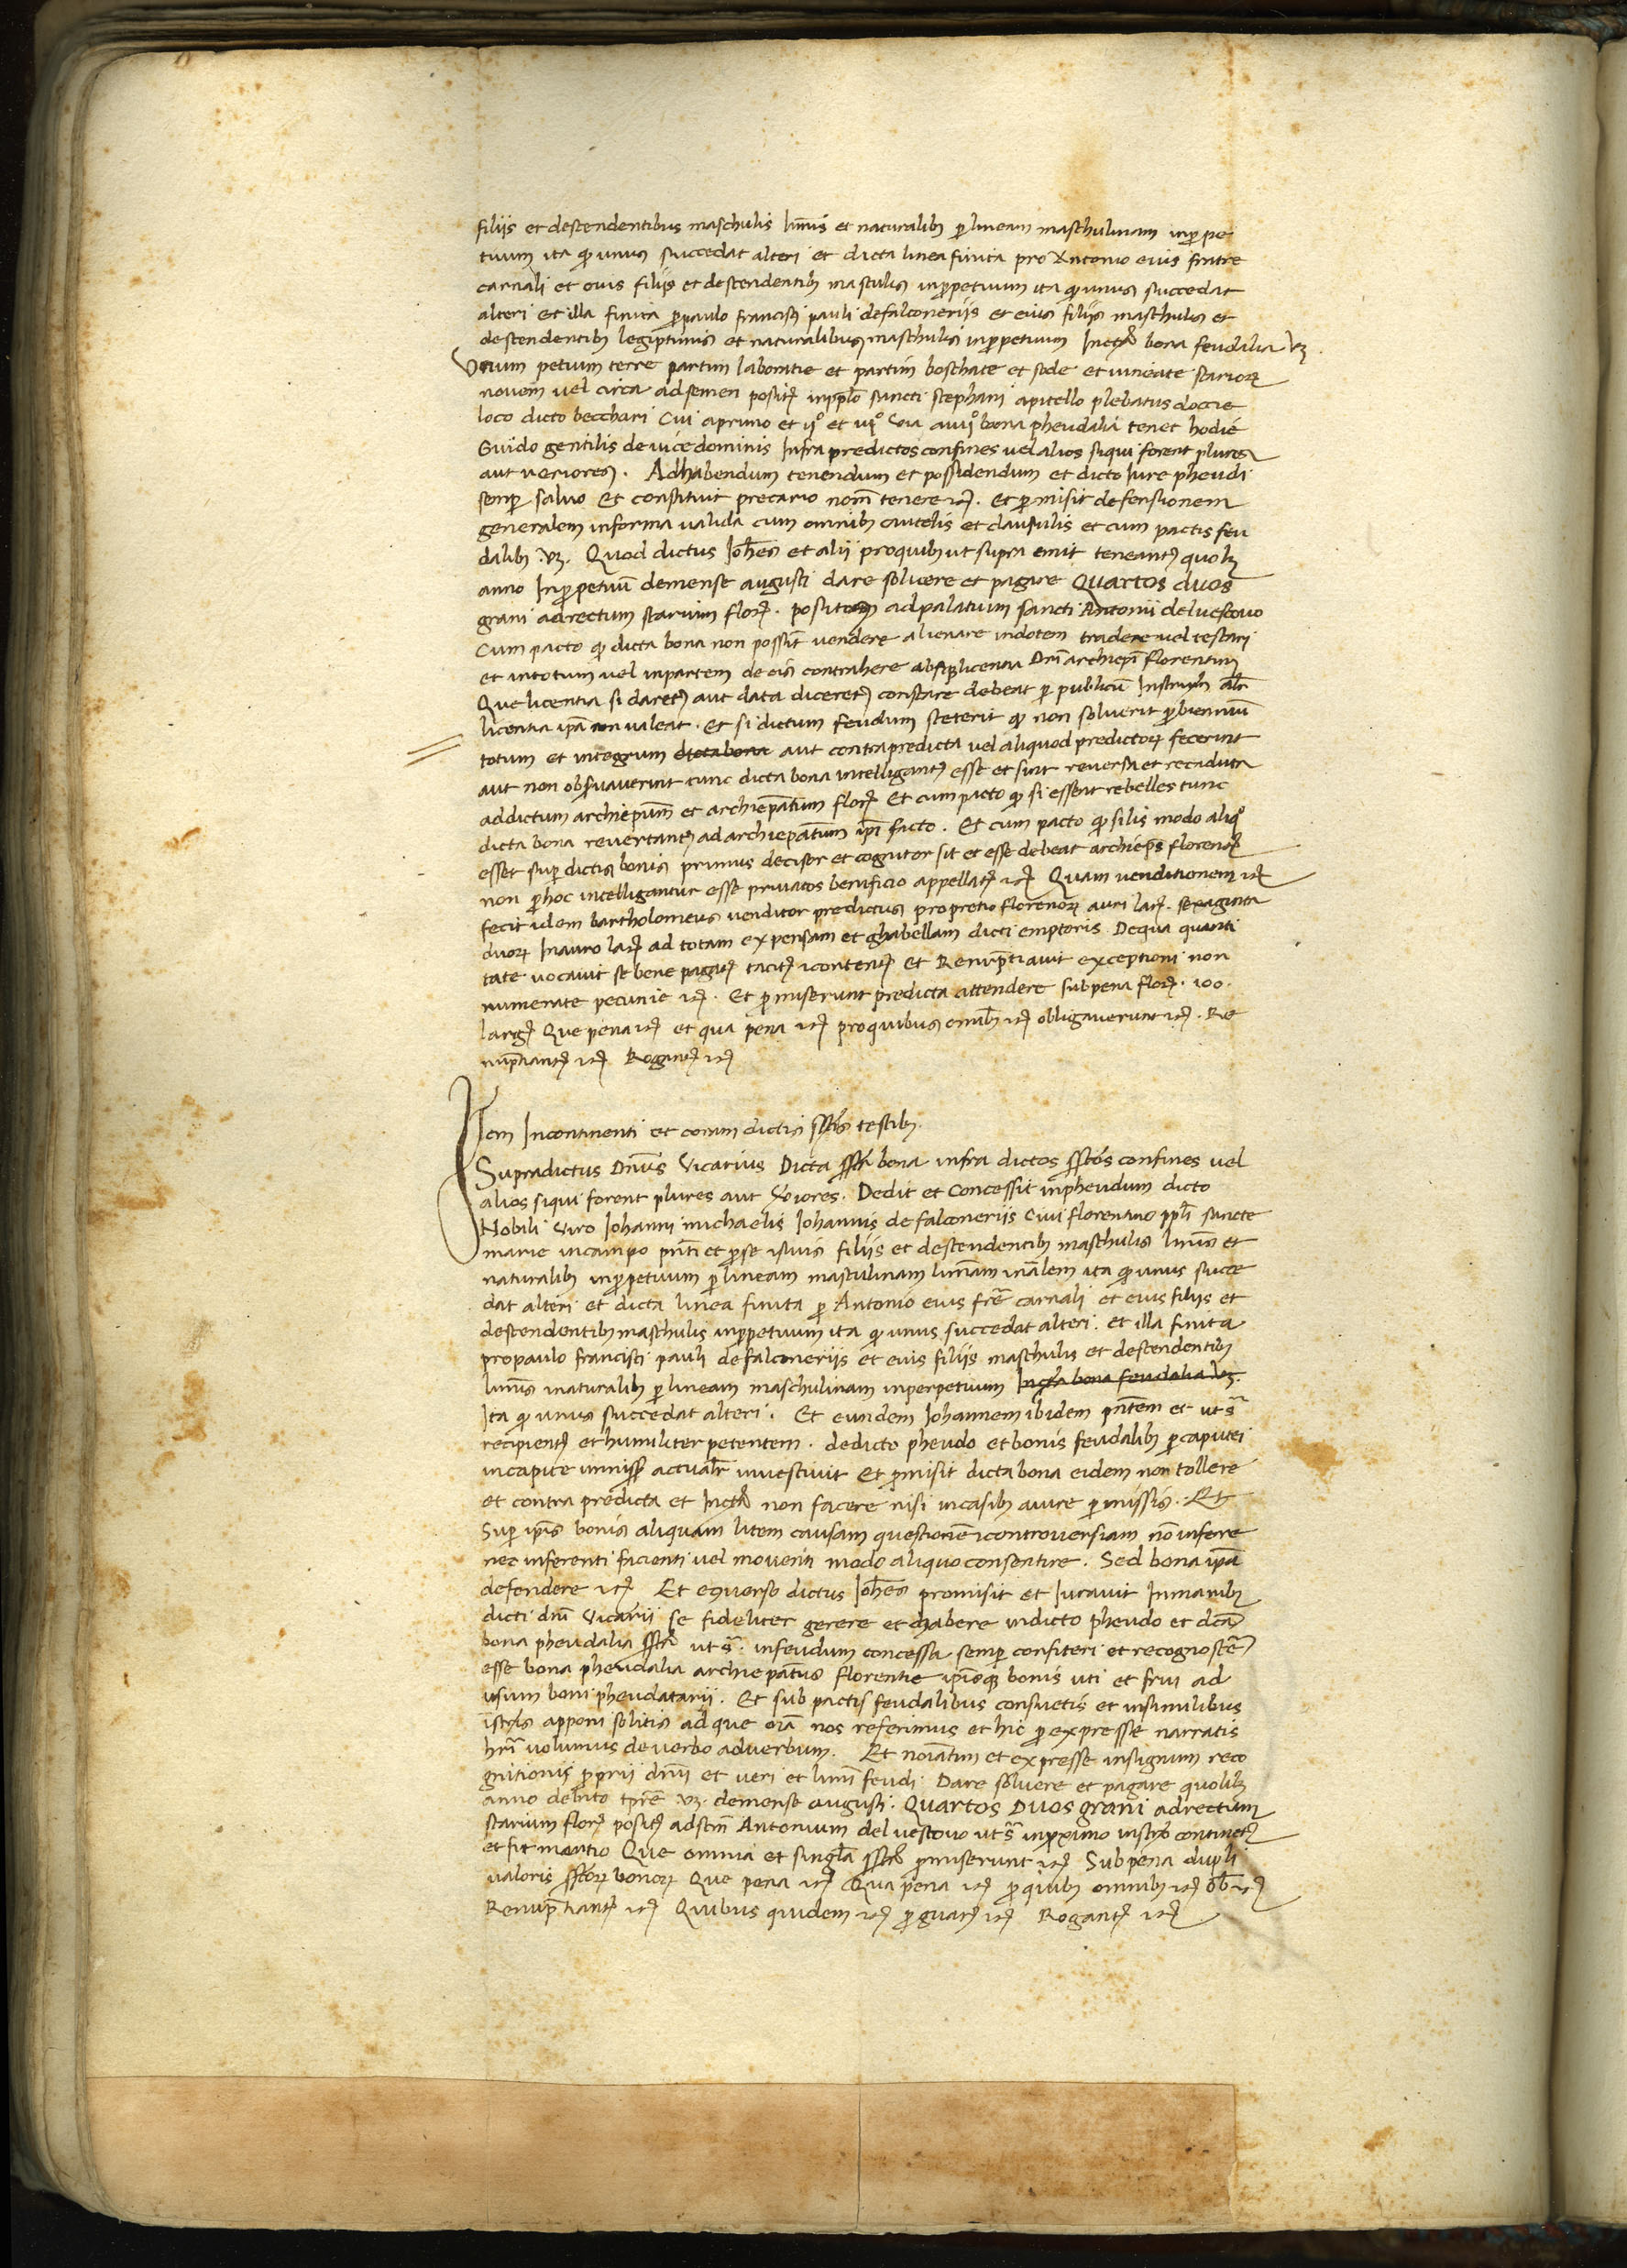 filiis et descendentibus maschulis l̄mis et naturalib₉ ꝑ lineam maschulinam inꝑpe
tuum ita qͦ unus succedat alteri et dicta linea finita pro Antonio eius fratre
carnali et eius filiis et descendentib₉ masculis inꝑpetuum ita qͦ unus succedat
alteri et illa finita ꝑ paulo francisci pauli defalconeriis et eius filiis maschulis et
descendentib₉ legiptimis et naturalibus maschulis inperpetuum bona feudalia vꝫ
Unum petium terre partim laboratie et partim boschate et sode et vineate starioꝝ
novem vel circa ad semen positꝭ inpp̄lo sancti stephani apitello plebatus doccie
loco dicto becchari Cui aprimo et ijͦ et iijͦ via aiiijͦ bona pheudalia tenet hodie
Guido gentilis de vicedominis Infra predictos confines vel alios siqui forent plures
aut veriores. Adhabendum tenendum et possidendum et dicto Iure pheudi
semꝑ salvo Et constituit precario nom̄ tenere ꝛcꝭ. et ꝑmisit defensionem
generalem informa valida cum omnib₉ cautelis et clausulis et cum pactis feu
dalib₉ .vꝫ. Quod dictus Ioh̄es et alii proquib₉ ut supra emit teneantꝭ quolꝫ
anno Inꝑpetuū demense augusti dare solvere et pagare Quartos duos
grani adrectum starium florꝭ. positoꝝ adpalatium sancti Antonii delvescovo
Cum pacto qͦ dicta bona non possīt vendere alienare indotem tradere vel testari
et intotum vel inpartem de eis contrahere absqꝫ licentia Dn̄i archiepī florentini
Que licentia si daretꝭ aut data diceretꝭ constare debeat ꝑ publicū Instrum̄ al̄r
licentia ip̄a non valeat. Et si dictum feudum steterit qͦ non solverit ꝑ biennium
totum et integrum aut contrapredicta vel aliquod predictoꝝ fecerint
aut non obẜvaverint tunc dicta bona intelligantꝭ esse et sint reversa et recaduta
addictum archiepūm et archiepātum florꝭ Et cum pacto qͦ si essent rebelles tunc
dicta bona revertantꝭ ad archiepātum ip̄o facto. Et cum pacto qͦ si lis modo aliqͦ
esset suꝑ dictis bonis primus decisor et cognitor sit et esse debeat archiep̄s florenꝭ
non ꝑ hoc intelligantur esse privatos benificio appellatꝭ ꝛcꝭ Quam venditionem ꝛcꝭ
fecit idem bartholomeus venditor predictus pro pretio florenoꝝ auri larꝭ. sexaginta
duoꝝ Inauro larꝭ ad totam expensam et ghabellam dicti emptoris Dequa quanti
tate vocavit se bene pagatꝭ tacitꝭ ⁊ contentꝭ Et Renūptiavit exceptioni non
numerate pecunie ꝛcꝭ. Et ꝑmiserunt predicta attendere subpena florꝭ. 100.
largꝭ Que pena ꝛcꝭ et qua pena ꝛcꝭ proquibus omīb₉ ꝛcꝭ obligaverunt ꝛcꝭ. Re
nūptiantꝭ ꝛcꝭ Rogantꝭ ꝛcꝭ
Item Incontinenti et coram dictis sſt̄is testib₉.
Supradictus Dn̄us Vicarius Dicta sſt̄a bona infra dictos sſt̄os confines vel
alios siqui forent plures aut v̄iores. Dedit et Concessit inpheudum dicto
Nobili Viro Iohanni michaelis Iohannis defalconeriis Civi florentino pp̄li sancte
marie incampo pn̄ti et ꝑ se ⁊ suis filiis et descendentib₉ maschulis l̄mis et
naturalib₉ inꝑpetuum ꝑ lineam masculinam ita qͦ unus succe
dat alteri et dicta linea finita ꝑ Antonio eius fr̄e carnali et eius filiis et
descendentib₉ maschulis inꝑpetuum ita qͦ unus succedat alteri. et illa finita
propaulo francisci pauli defalconeriis et eius filiis maschulis et descendentib₉
l̄mis ⁊ naturalib₉ ꝑ lineam maschulinam inperpetuum bona feudalia vꝫ.
Ita qͦ unus succedat alteri. Et eundem Iohannem ibidem pn̄tem et ut s̄
recipientꝭ et humiliter petentem. dedicto pheudo et bonis feudalib₉ ꝑ caputei
incapite actual̄r investivit Et ꝑmisit dicta bona eidem non tollere
et contra predicta et non facere nisi incasib₉ aiure ꝑmissis. Et
Suꝑ ip̄is bonis aliquam litem causam questionē ⁊ controversiam nō inferre
nec inferenti facienti vel moventi modo aliquo consentire. Sed bona ip̄a
defendere ꝛcꝭ Et econverso dictus Ioh̄es promisit et Iuravit Inmanib₉
dicti dn̄i Vicarii se fideliter gerere et habere indicto pheudo et dc̄a
bona pheudalia sſt̄a ut s̄. infeudum concessa semꝑ confiteri et recognoscē
esse bona pheudalia archiepātus florentie ip̄isqꝫ bonis uti et frui ad
usum boni pheudatarii. Et sub pactis feudalibus consuetis et insimilibus
apponi solitis ad que oīa nos referimus et hic ꝑ expresse narratis
h̄ri volumus de verbo adverbum. Et noīatim et expresse insignum reco
gnitionis ꝓprii dn̄ii et veri et l̄mi feudi Dare solvere et pagare quolibꝫ
anno debito tp̄re vꝫ. demense augusti. Quartos Duos grani adrectum
starium florꝭ positꝭ adsc̄m Antonium del vescovo ut s̄ inꝓximo Instr̄o continetꝭ
et fit mentio Que omnia et singl̄a sſt̄a ꝑmiserunt ꝛcꝭ Subpena dupli
valoris sſt̄oꝝ bonoꝝ Que pena ꝛcꝭ Qua pena ꝛcꝭ ꝑ quib₉ omnib₉ ꝛcꝭ ob̄ ꝛcꝭ
Renūptiantꝭ ꝛcꝭ Quibus quidem ꝛcꝭ ꝑ guarꝭ ꝛcꝭ Rogantꝭ ꝛcꝭ